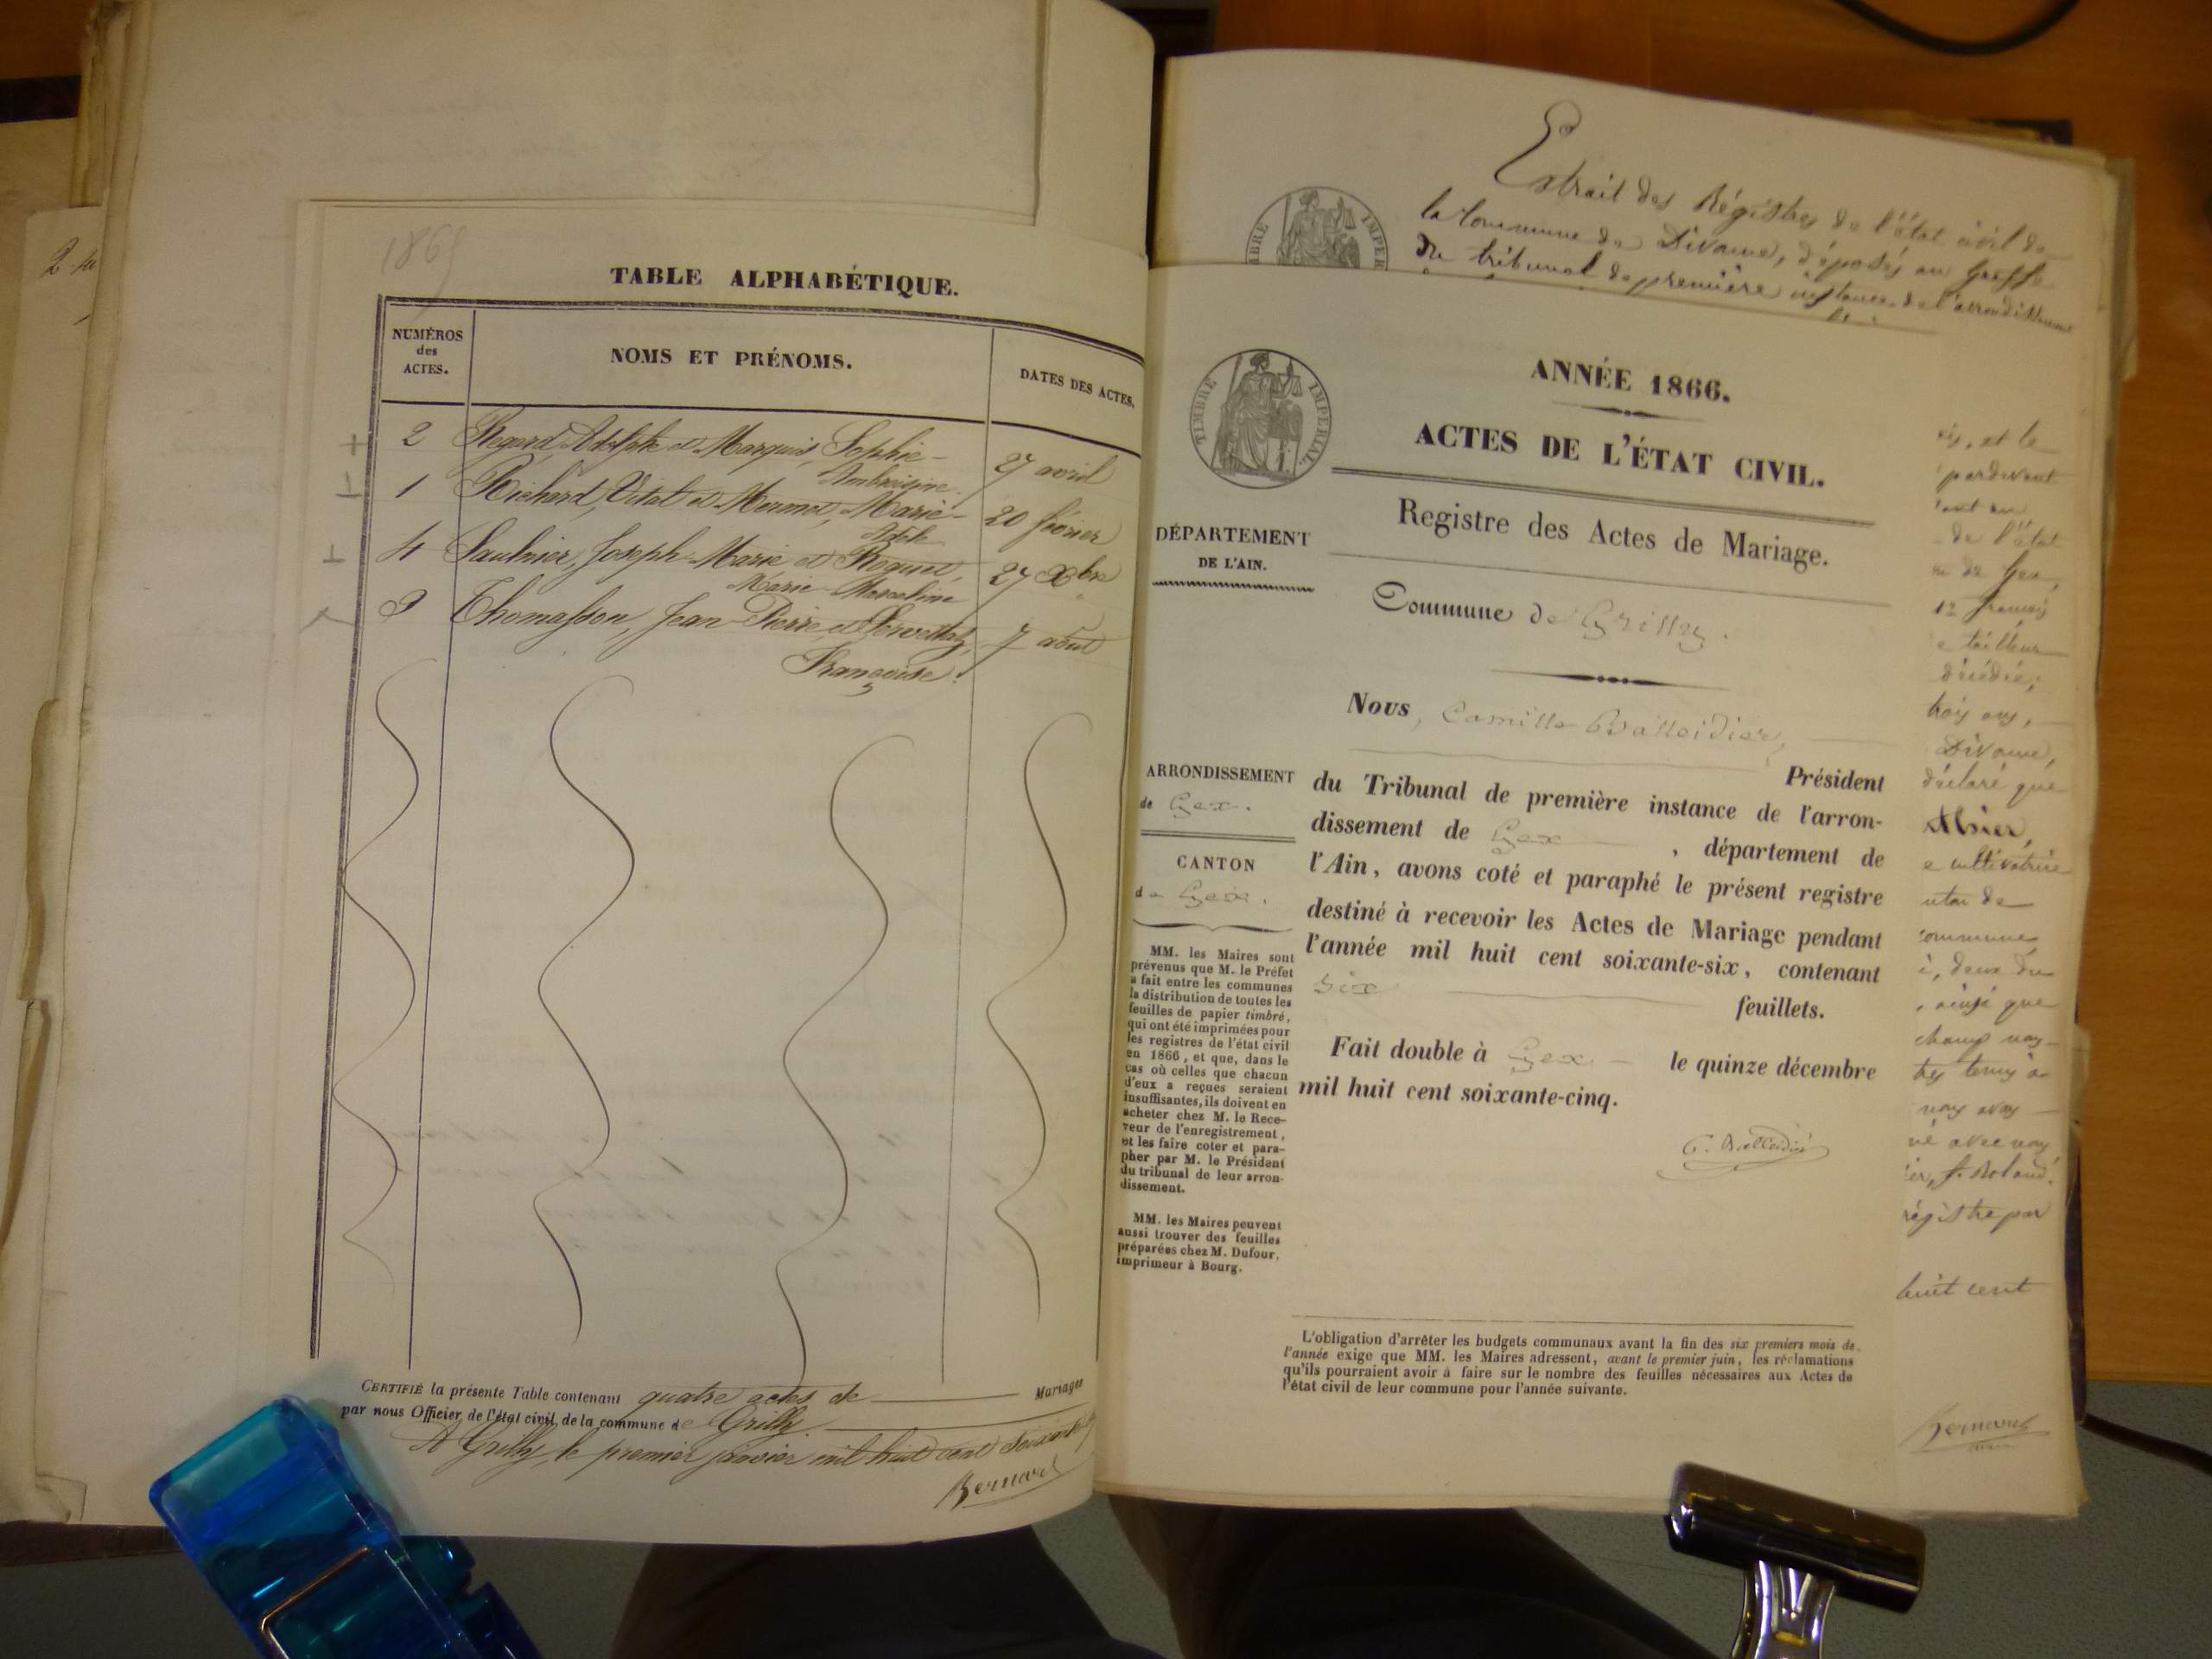 1865
TABLE ALPHABÉTIQUE.
NUMÉROS
des
ACTES.
NOMS ET PRÉNOMS.
DATES DES ACTES.
2 Regard, Adolphe et Marquis, Sophie-
Ambroisine. 27 avril
1 Richard, Vital et Mermet, Marie-
20 février
4 Saulnier, Joseph-Marie et Roquet,
Marie-Marceline 27 Xbre
3 Thomasson, Jean-Pierre et
Françoise. 7 août
CERTIFIÉ la présente Table contenant quatre actes de Mariages
par nous Officier de l'état civil de la commune de Grilly.
A Grilly, le premier janvier mil huit cent soixante
Bernard
Extrait des Régistres de l'état civil de
la Commune de Divonne, déposés au Greffe
du tribunal de première instance de l'arrondissement
TIMBRE IMPÉRIAL.
ANNÉE 1866.
ACTES DE L'ÉTAT CIVIL.
Registre des Actes de Mariage.
DÉPARTEMENT
DE L'AIN.
Commune de Grilly.
Nous, Camille Balleidier,
Président
du Tribunal de première instance de l'arron-
dissement de Gex, département de
l'Ain, avons coté et paraphé le présent registre
destiné à recevoir les Actes de Mariage pendant
l'année mil huit cent soixante-six, contenant
six feuillets.
Fait double à Gex le quinze décembre
mil huit cent soixante-cinq.
C. Balleidier
ARRONDISSEMENT
de Gex.
CANTON
de Gex.
MM. les Maires sont
prévenus que M. le Préfet
a fait entre les communes
la distribution de toutes les
feuilles de papier timbré,
qui ont été imprimées pour
les registres de l'état civil
en 1866, et que, dans le
cas où celles que chacun
d'eux a reçues seraient
insuffisantes, ils doivent en
acheter chez M. le Rece-
veur de l'enregistrement,
et les faire coter et para-
pher par M. le Président
du tribunal de leur arron-
dissement.
MM. les Maires peuvent
aussi trouver des feuilles
préparées chez M. Dufour,
imprimeur à Bourg.
L'obligation d'arrêter les budgets communaux avant la fin des six premiers mois de
l'année exige que MM. les Maires adressent, avant le premier juin, les réclamations
qu'ils pourraient avoir à faire sur le nombre des feuilles nécessaires aux Actes de
l'état civil de leur commune pour l'année suivante.
et le
pardevant
de l'état
de Gex,
tailleur
décédé;
trois ans,
Divonne,
déclaré que
cultivatrice
commune
, deux du
, ainsi que
nous avons
né avec nous
régistre par
huit cent
Bernard